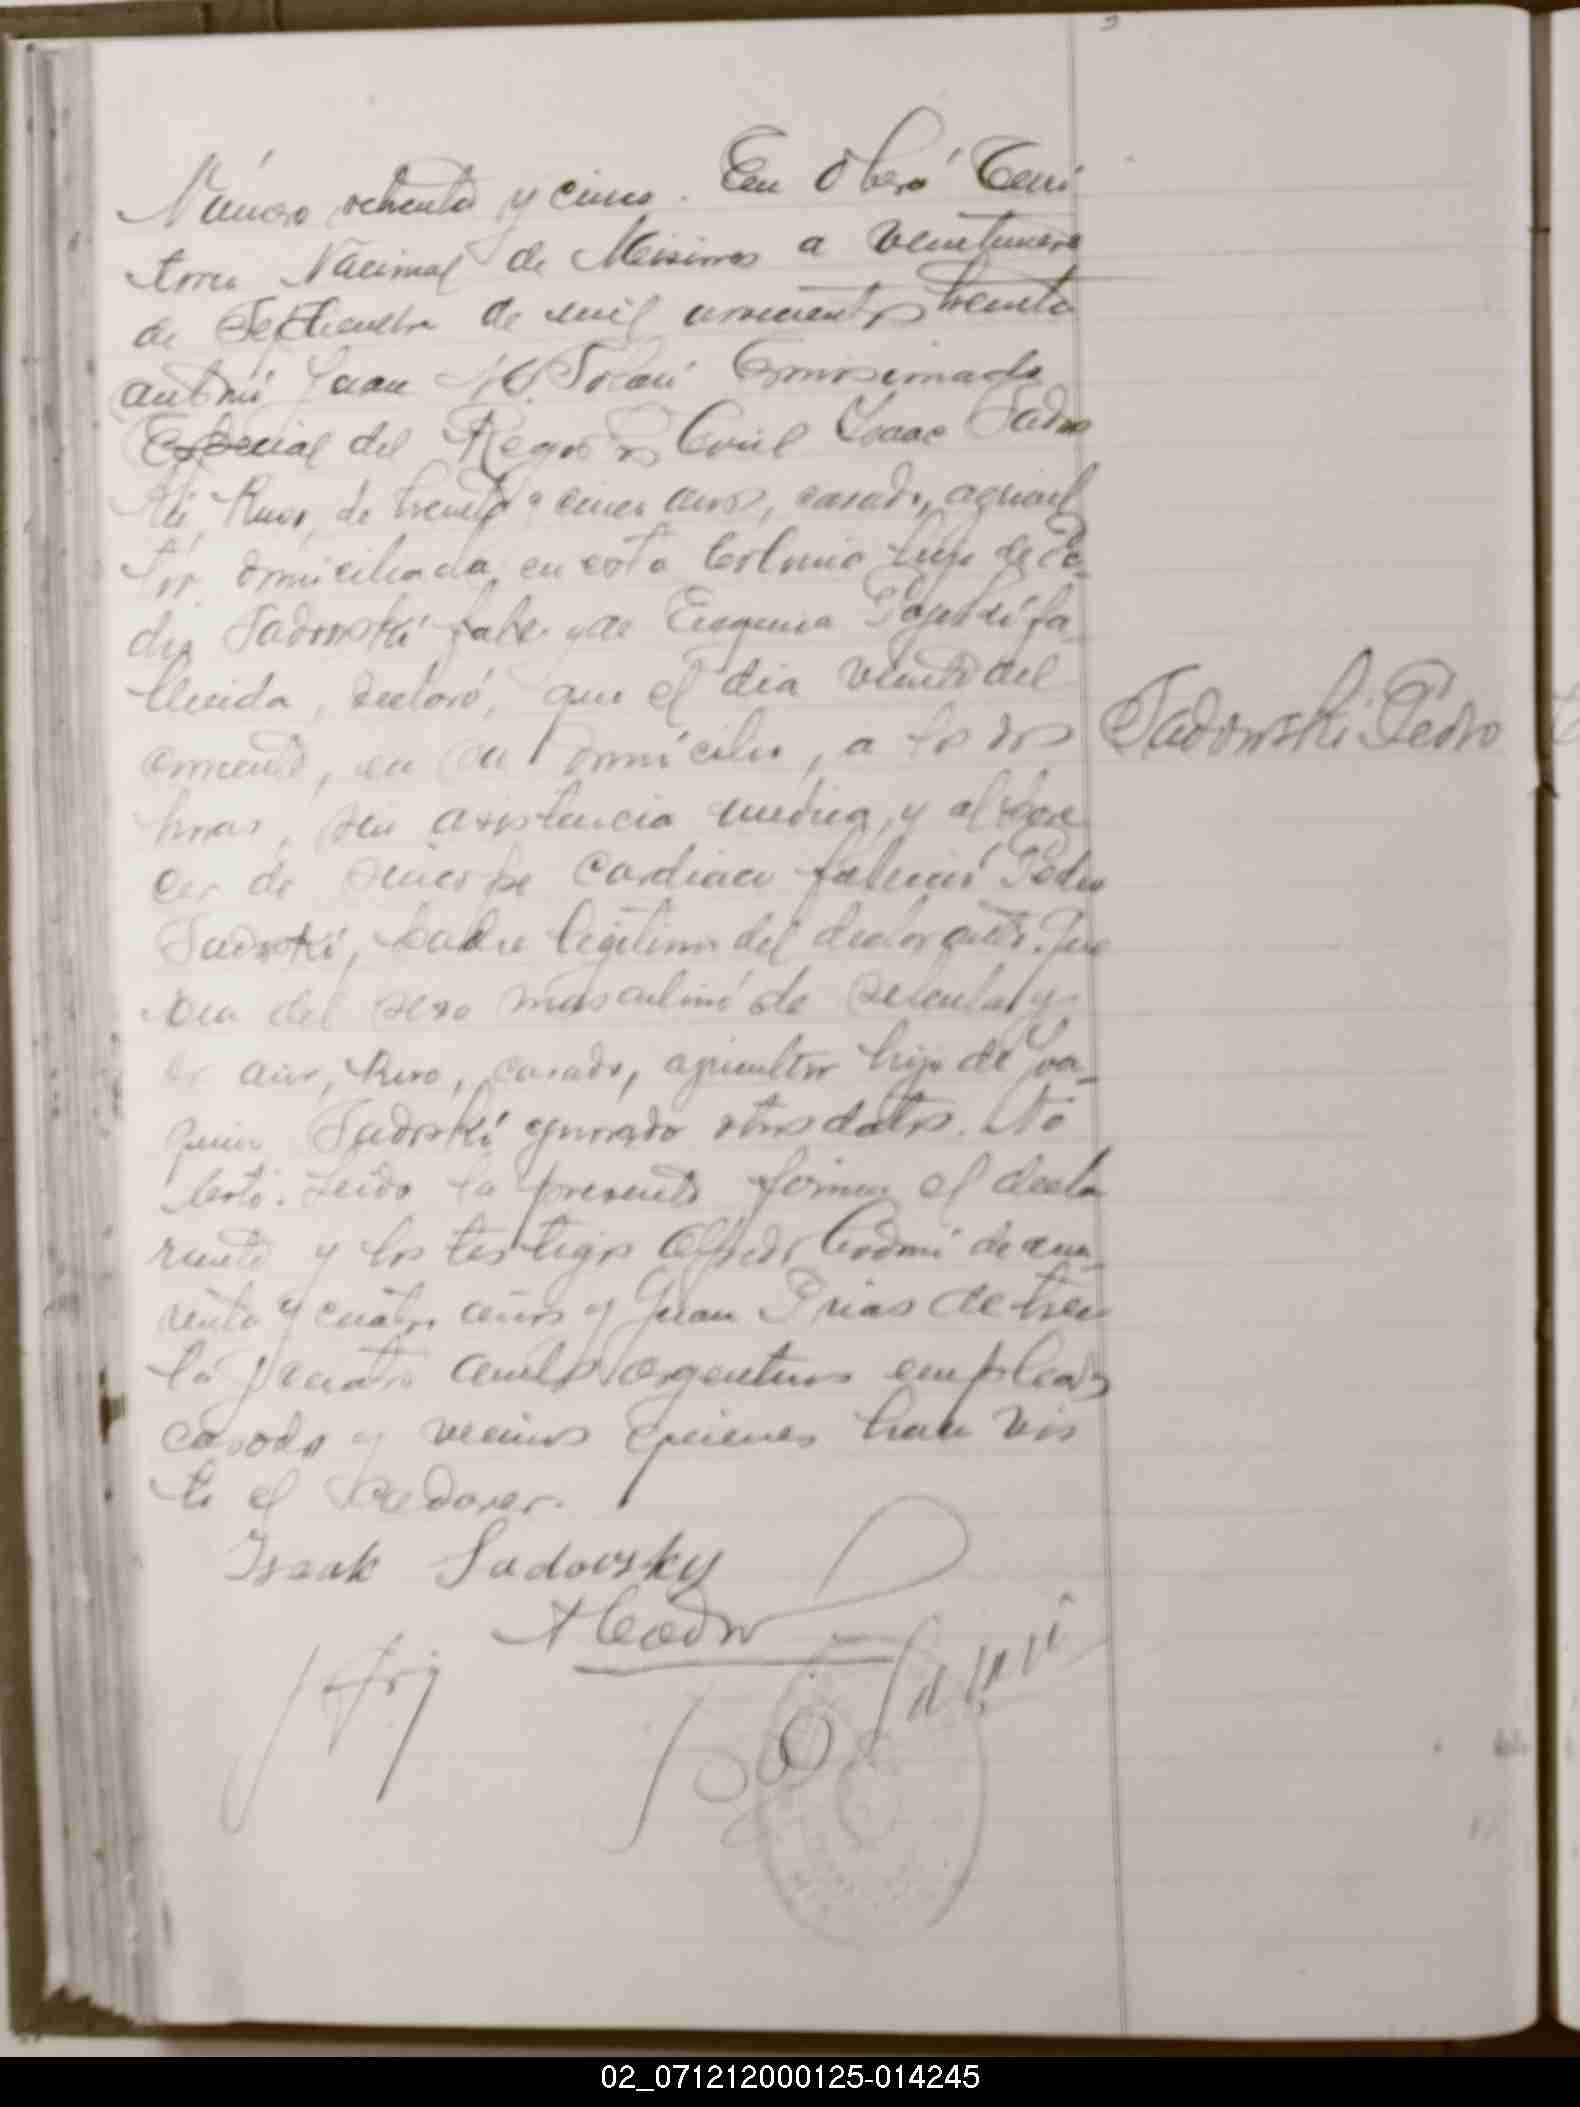 Número ochenta y cinco. En Oberá Terri
torio Nacional de Misiones a veintinueve
de Septiembre de mil novecientos treinta
ante mi Juan Solari Comisionado
Especial del Registro Civil Isaac Sados
ki, Ruso, de treinta y cinco años, casado, agricul
tor domiciliado en esta Colonia hijo de Pe-
dro Sadowski falle. y de Eugenia fa
llecida, declaró, que el dia veinte del
corriente, en su domicilio, a las dos
horas, sin asistencia medica, y al
cer de sincope cardiaco falleció Pedro
Sadoski, padre legitimo del declarante. Que
era del sexo masculino de setenta y
años, Ruso, casado, agricultor hijo de Joa-
quin Sadoski ignorado otros datos. No
testó. Leido la presente firman el decla
rante y los testigos Alfredo de cua-
renta y cuatro años y Juan de trein
ta y cuatro años argentinos empleados
casados y vecinos quienes han vis
to el cadaver.
Sadowski Pedro
Isaak Sadovsky
02_071212000125-014245